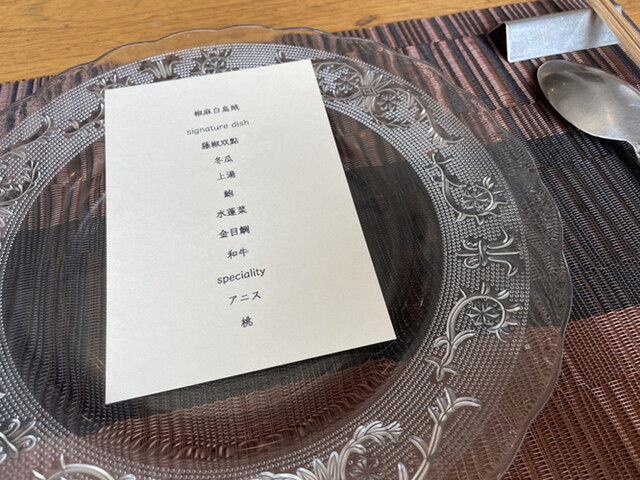 椒麻白烏賊
signature dish
藤椒双點
冬瓜
上湯
鮑
水蓮菜
金目鯛
和牛
speciality
アニス
桃